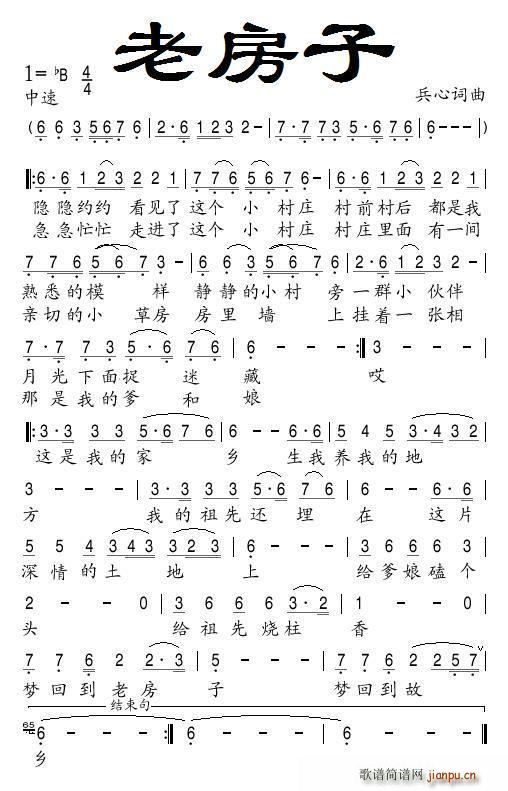 老房子
1=ᵇB 4/4
中速
兵心词曲
(6 6 3 5676 | 2·6 123 2- | 7·7 73 5·6 76 | 6--- )
‖:6·6 123 221 | 776 6 5676 | 6·6 123 221 |
隐隐约约 看见了 这个 小 村庄 村前村后 都是我
急急忙忙 走进了 这个 小 村庄 村庄里面 有一间
776 5 67 3- | 663 5 56 76 | 2·6 12 32- |
熟悉的模 样 静静的小村 旁一群小 伙伴
亲切的小 草房 房里墙 上挂着一 张相
7·7 73 5·6 76 | 6--- :‖ 3--- |
月光下面捉 迷 藏 哎
那是我的爹 和 娘
‖:3·3 33 5·6 76 | 6-- 6·6 | 545 3·432 |
这是我的家 乡 生我养我的地
3--- | 3·3 33 5·6 76 | 7-67 |
方 我的祖先还埋 在 这片
55 343 323 | 6--- | 6666 |
深情的土 地 上 给爹娘磕个
2--0 | 3666 3·2 | 3--0 |
头 给祖先烧柱 香
7762 2·3 | 5--- | 7762 257 ∨ |
梦回到老房 子 梦回到故
结束句
65
6--- :‖ 6--- | 6--- ‖
乡
歌谱简谱网
jianpu.cn